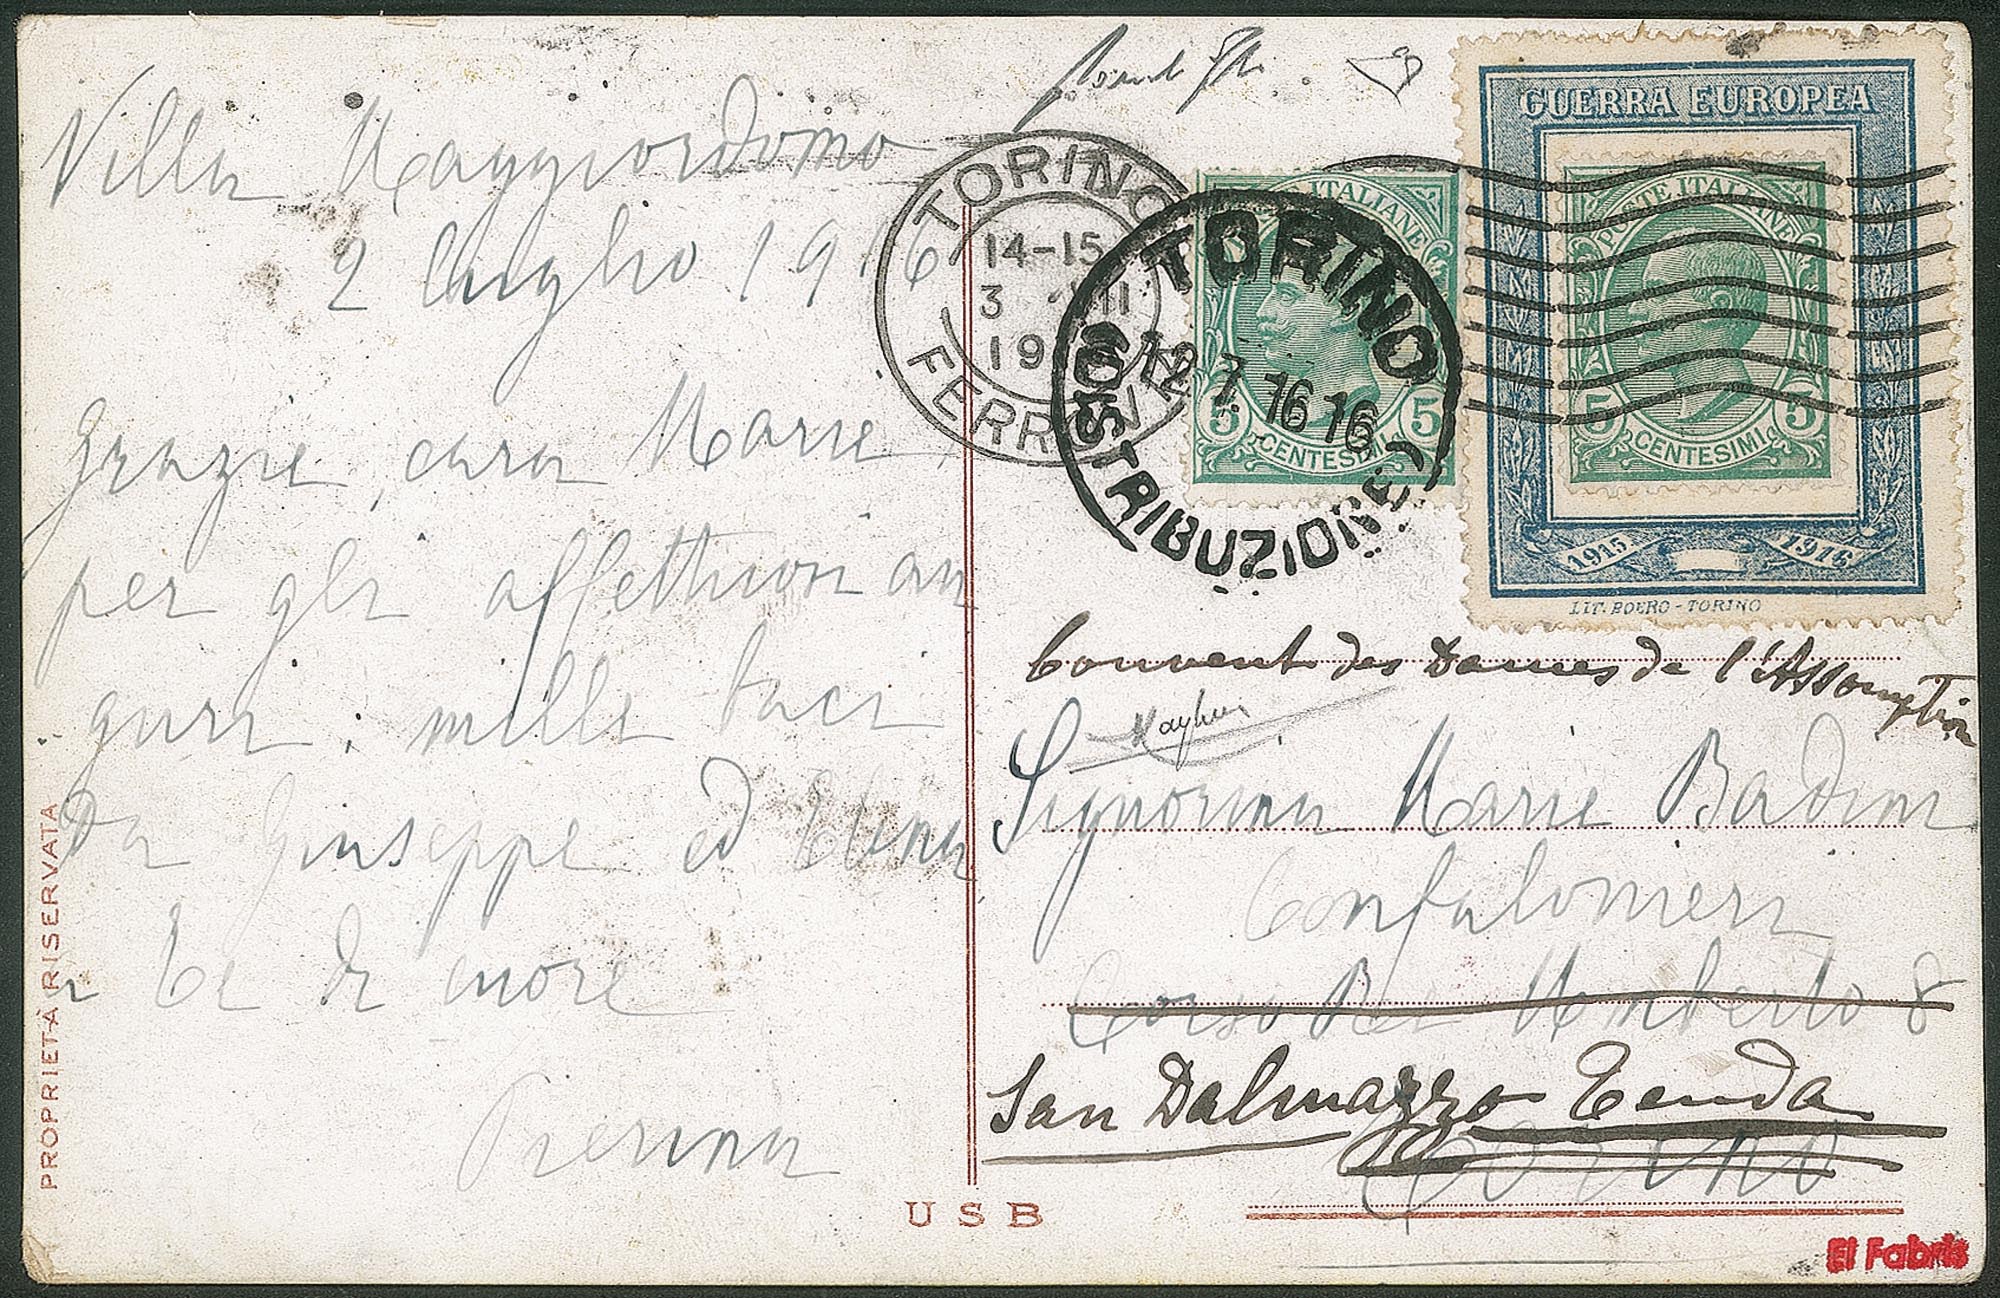 Villa Maggiordomo
2 luglio 1916
Grazie, cara Marie,
per gli affettuosi au
guri: mille baci
da Giuseppe ed Elena
a te di cuore
Pierina
PROPRIETÀ RISERVATA
USB
TORINO
14-15
3 VII
19
FERROVIA
TORINO
12 7 16 16
DISTRIBUZIONE
POSTE ITALIANE
5 CENTESIMI 5
GUERRA EUROPEA
POSTE ITALIANE
5 CENTESIMI 5
1915 1916
LIT. BOERO - TORINO
Couvent des Dames de l'Assomption
Signorina Marie Badini
Confalonieri
Corso Re Umberto 8
San Dalmazzo Tenda
Torino
El Fabris